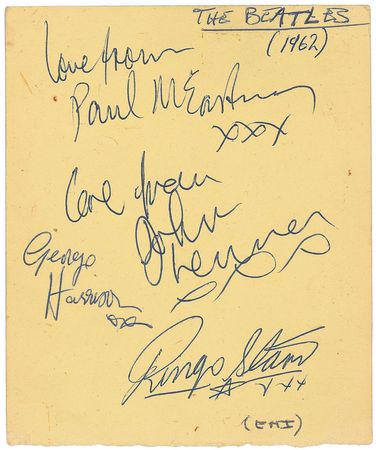 THE BEATLES
(1962)
love from
Paul McCartney
xxx
love from
John
Lennon
xxx
George
Harrison
xx
Ringo Starr
xxx
(EMI)